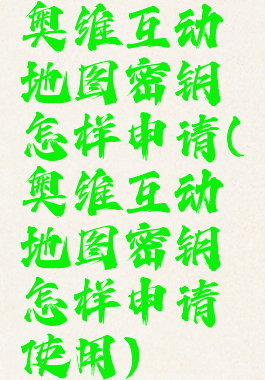 奥维互动
地图密钥
怎样申请(
奥维互动
地图密钥
怎样申请
使用)